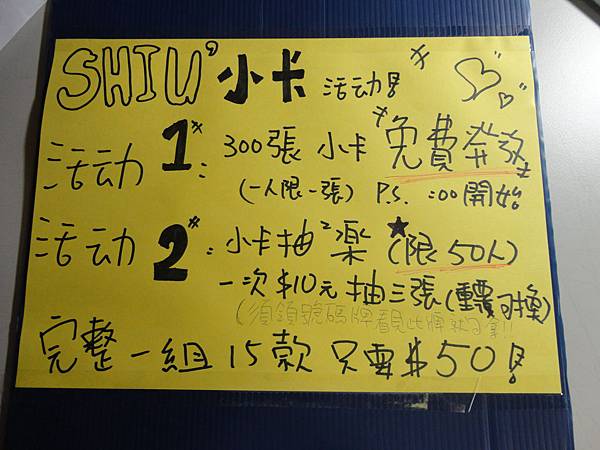 SHIU' 小卡 活动!
活动 1*: 300張 小卡 *免費発放*
(一人限一張) P.S. :00開始
活动 2*: 小卡抽²樂 ★(限50人)
一次$10元 抽三張(重覆可換)
(須領號碼牌看見此牌就可拿!!
完整一組15款 只要$50!